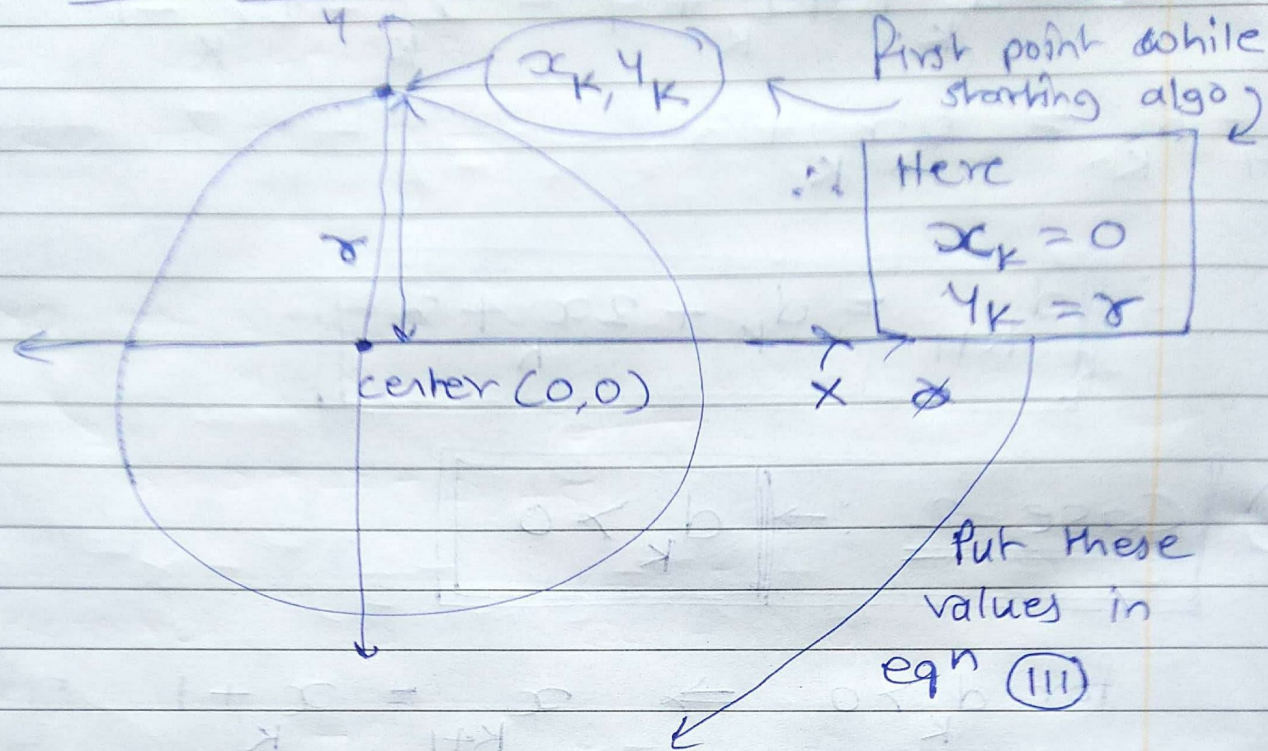 y
x_K, y_K
First point while
starting algo
∴ Here
x_K = 0
y_K = r
r
center (0,0)
X
Put these
values in
eqn (III)